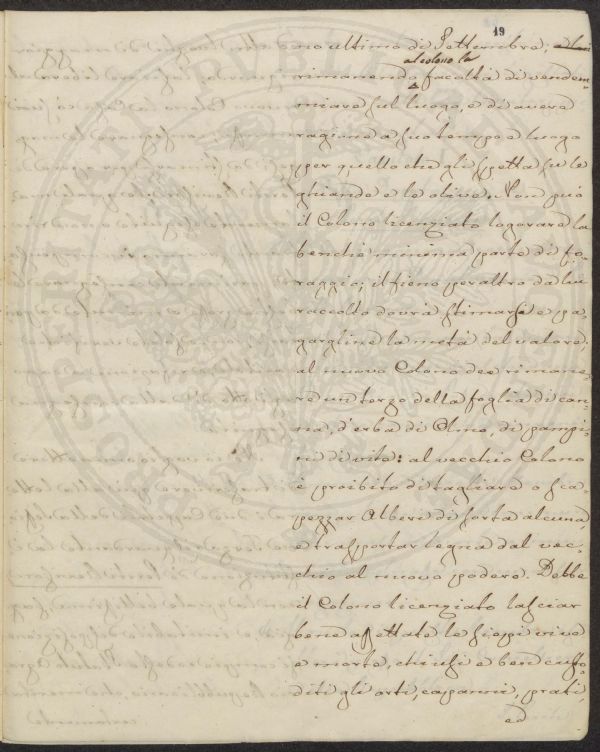 19
no ultimo di Settembre;
al colono la
rimanendo facoltà di vendem-
miare sul luogo, e di avere
ragione a suo tempo e luogo
per quello che gli spetta su le
ghiande e le olive. Non può
il Colono licenziato logorare la
benchè minima parte di fo-
raggio; il fieno peraltro da lui
raccolto dovrà stimarsi e pa-
gargline la metà del valore;
al nuovo Colono dee rimane-
re un terzo della foglia di can-
na, d'erba di Olmo, di pampi-
ni di vite: al vecchio Colono
è proibito di tagliare o sca-
pezzar Alberi di sorta alcuna
e trasportar legna dal vec-
chio al nuovo podere. Debbe
il Colono licenziato lasciar
bene assettate le siepi vive
e morte, chiusi e ben custo-
diti gli orti, capanni, prati,
ed